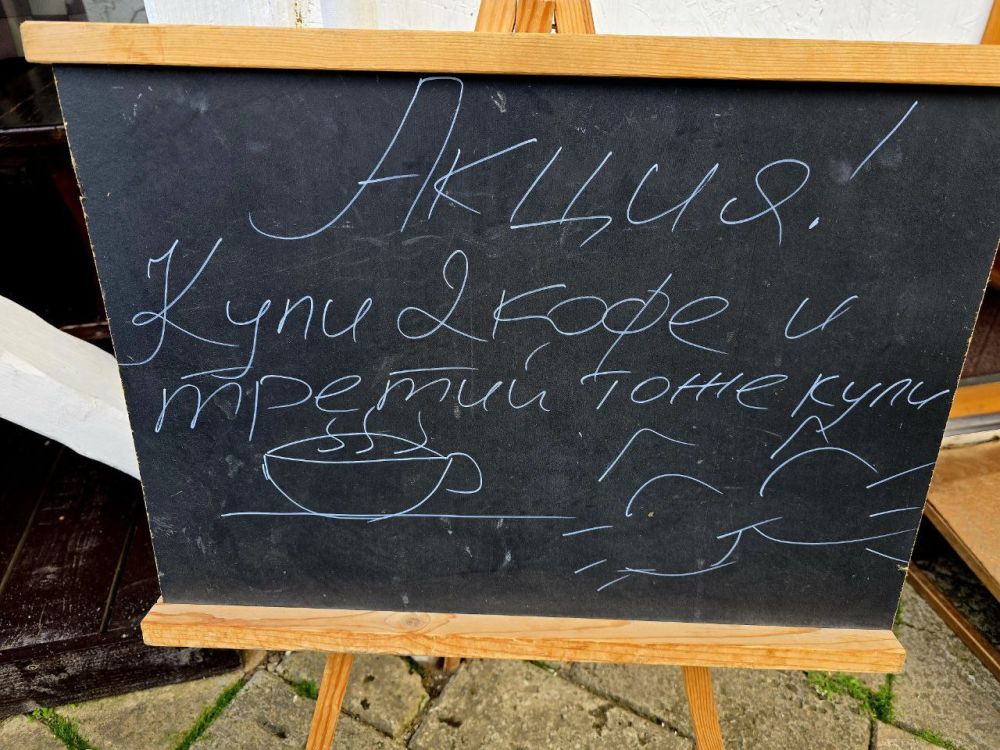 Акция!
Купи 2 кофе и
третий тоже купи